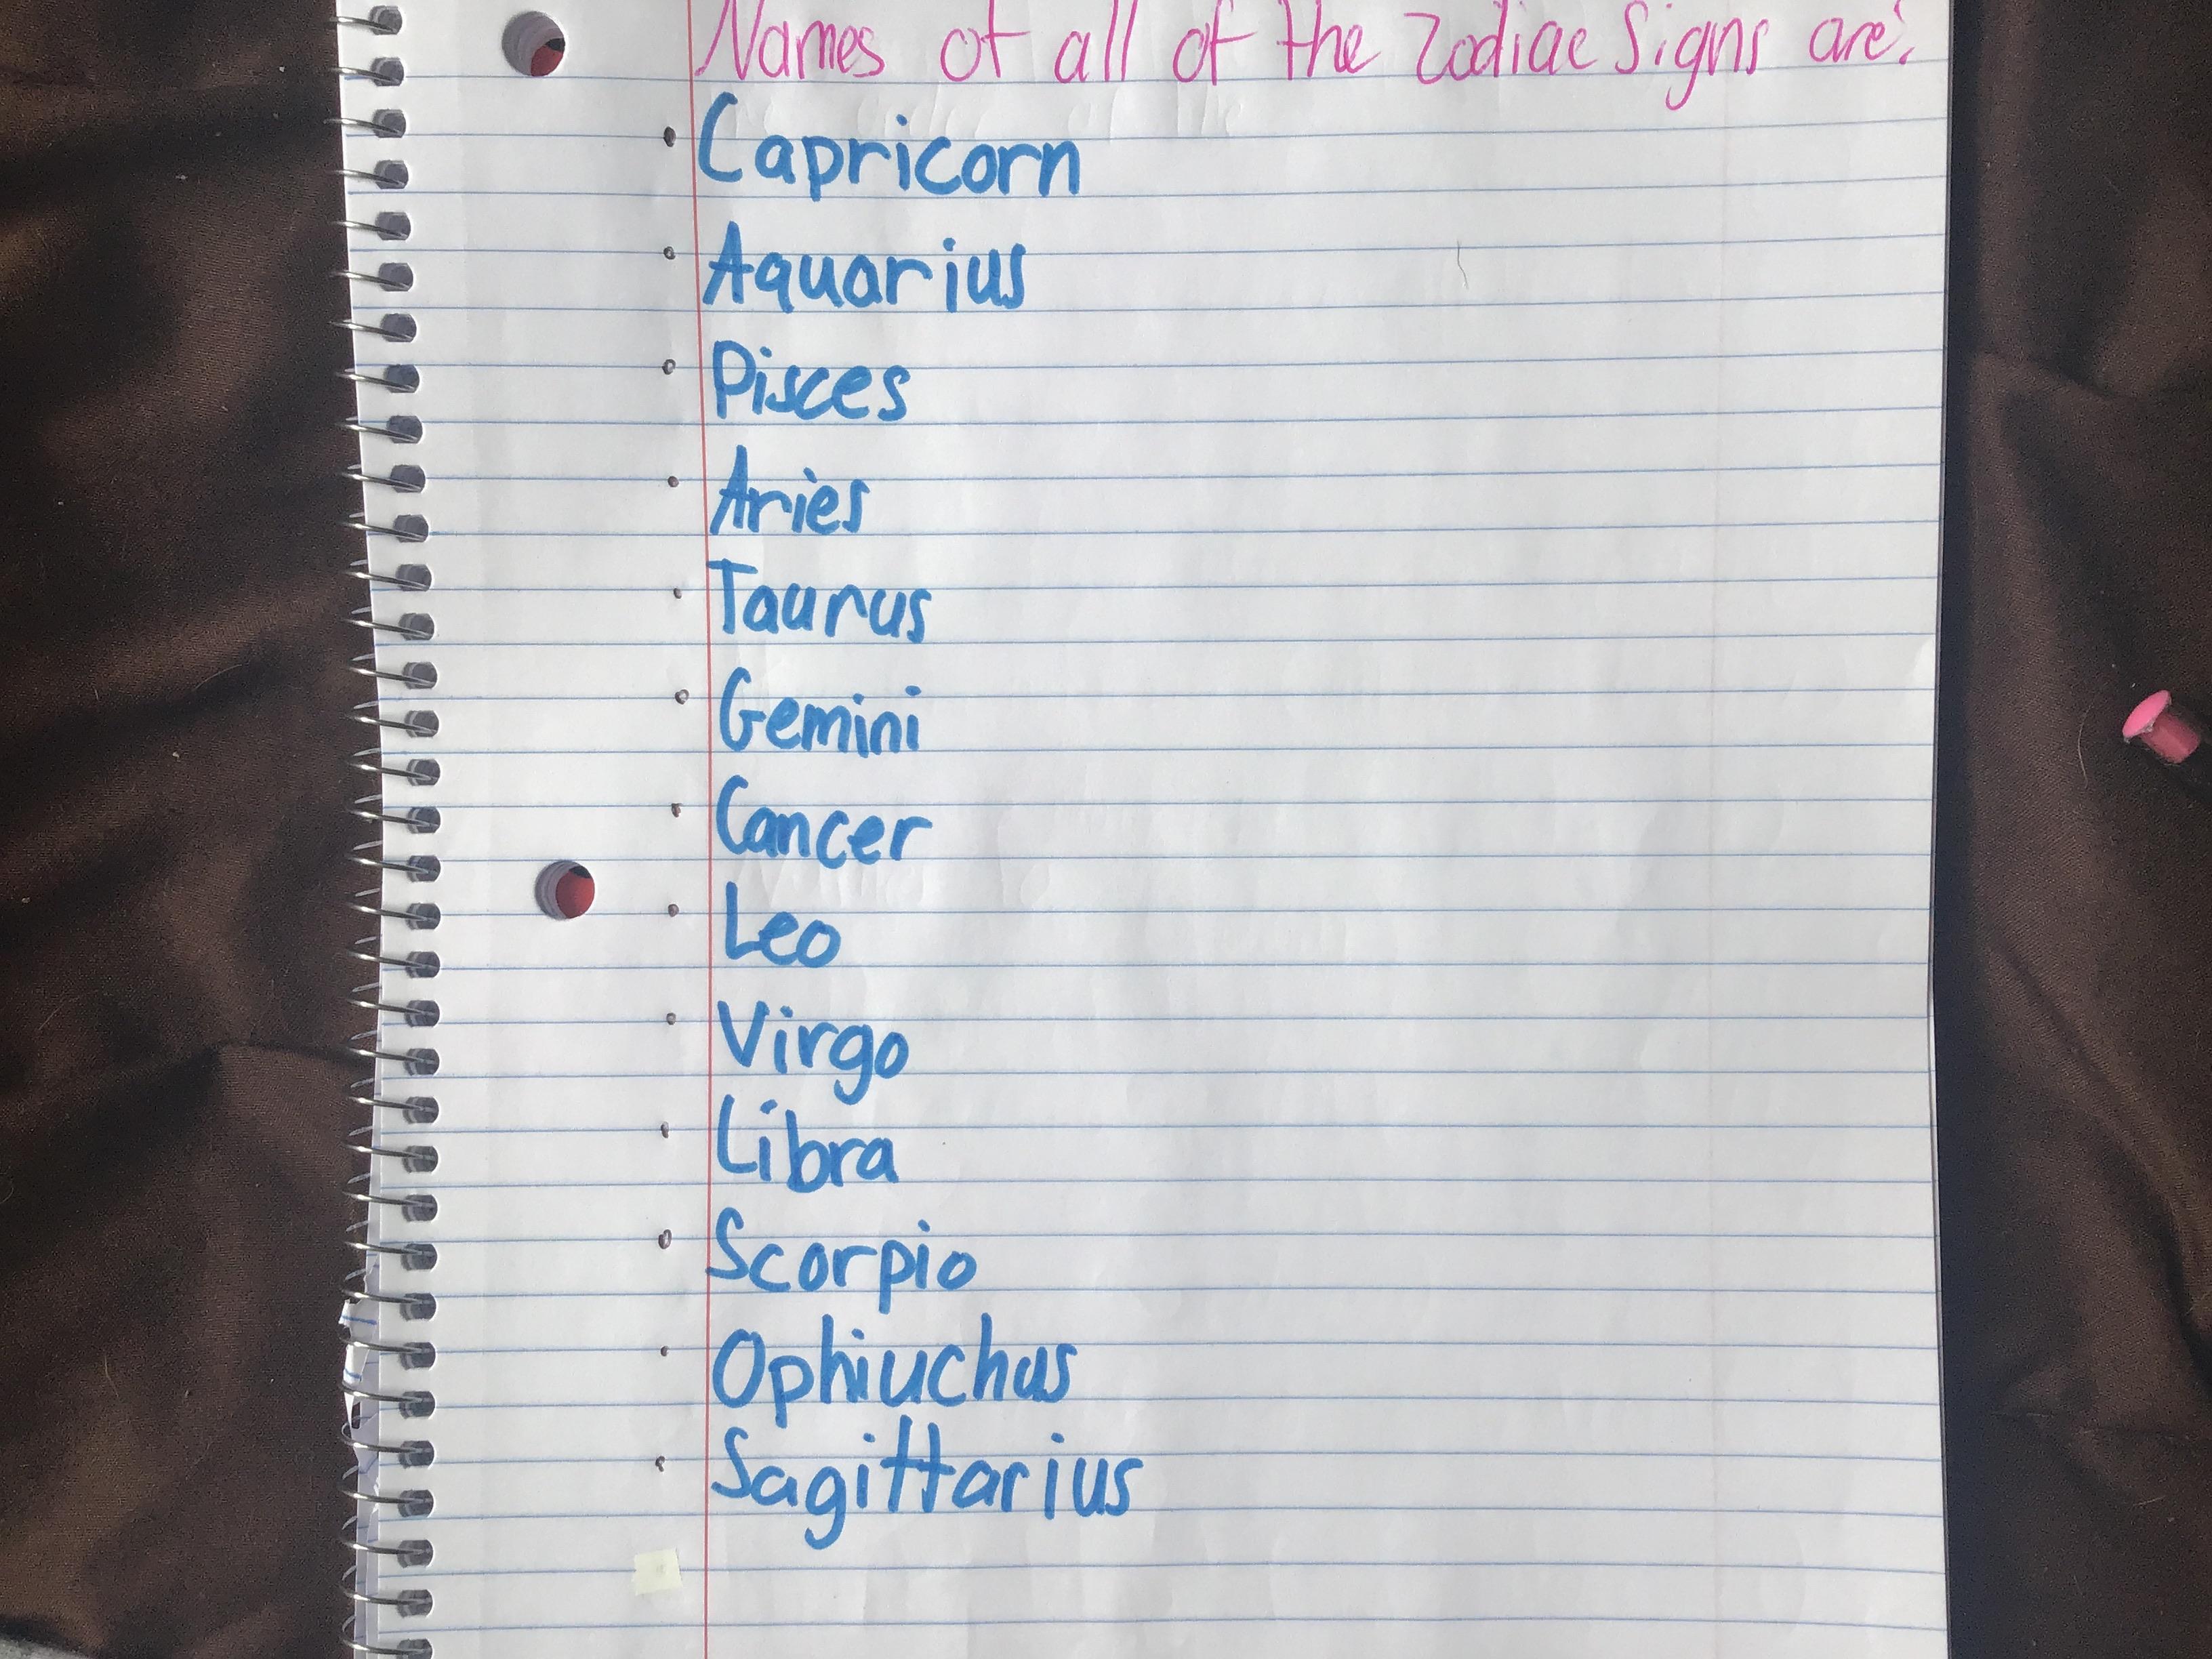 Names of all of the Zodiac Signs are:
• Capricorn
• Aquarius
• Pisces
• Aries
• Taurus
• Gemini
• Cancer
• Leo
• Virgo
• Libra
• Scorpio
• Ophiuchus
• Sagittarius